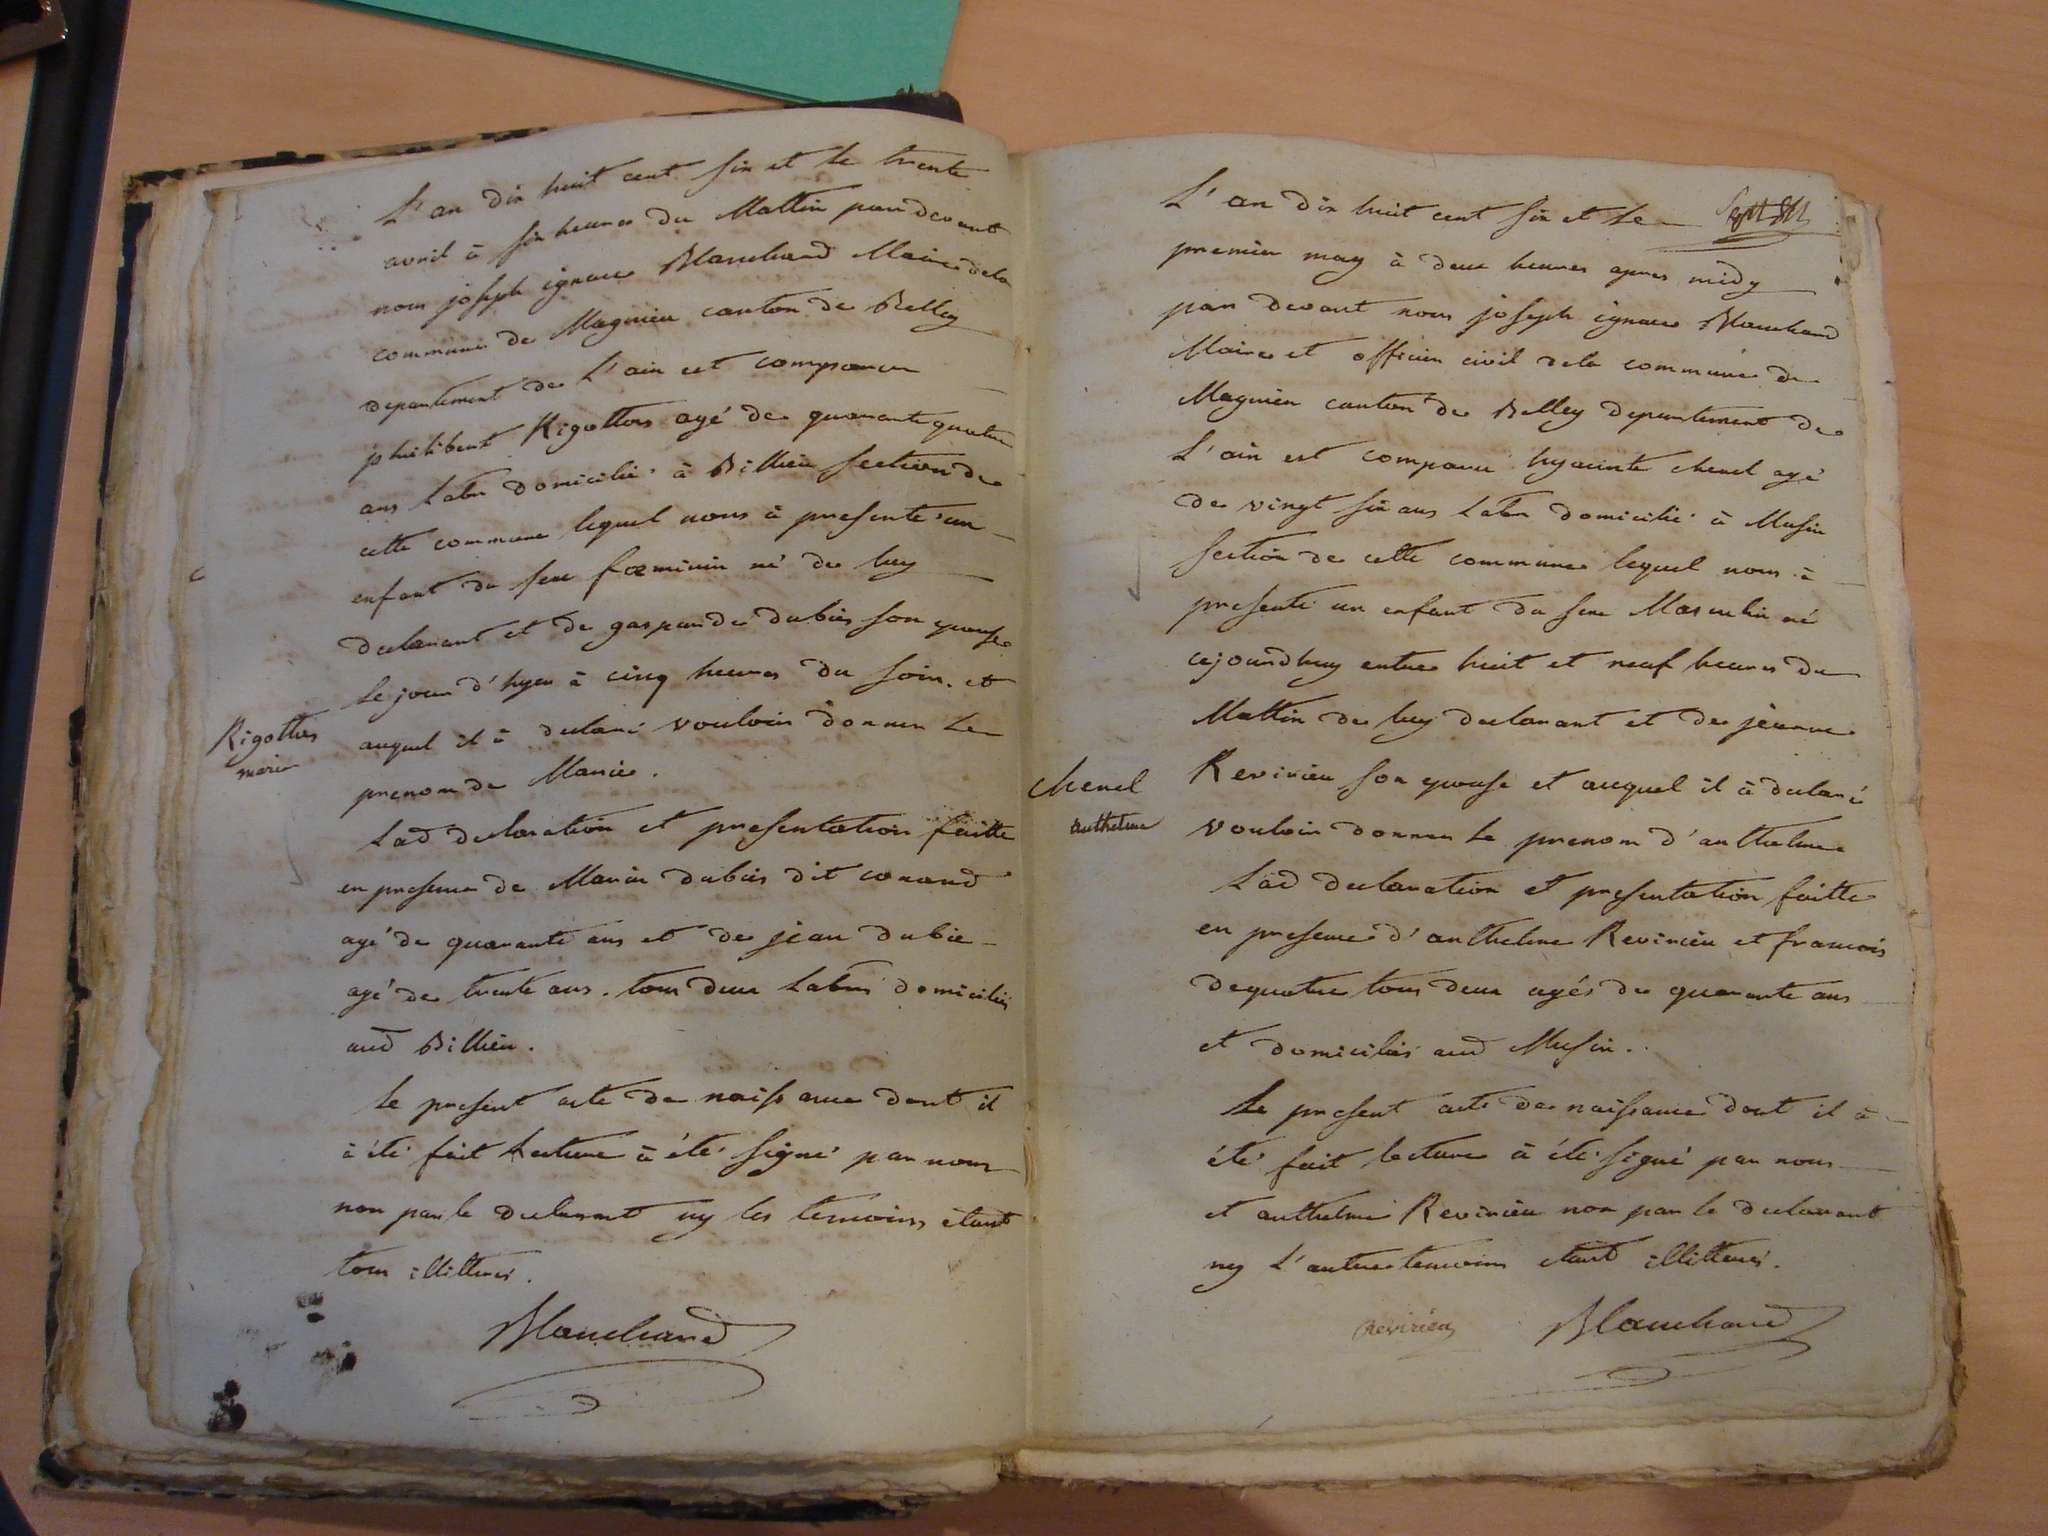 L'an dix huit cent six et le trente
avril à six heures du Mattin par devant
nous joseph ignace Blanchard Maire dela
commune de Magnieu canton de Belley
departement de L'ain est comparu
philibert Rigottier agé de quarante quatre
ans Labr domicilié à Billieu section de
cette commune lequel nous à presenté un
enfant du sexe fœminin né de luy
declarant et de gasparde dubiés son epouse
le jour d'hyer à cinq heures du soir. et
Rigottier
marie
auquel il à declaré vouloir donner Le
prenom de Marie.
Lad declaration et presentation faitte
en presence de Marin dubiés dit conand
agé de quarante ans et de jean dubie
agé de trente ans. tous deux Labrs domiciliés
aud Billieu.
Le present acte de naissance dont il
à été fait Lecture à été signé par nous
non par le declarant ny les temoins étant
tous illitterés.
Blanchard
L'an dix huit cent six et le
premier may à deux heures apres midy
par devant nous joseph ignace Blanchard
Maire et officier civil dela commune de
Magnieu canton de Belley departement de
L'ain est comparu hyacinte chenel agé
de vingt six ans Labr domicilié à Musin
section de cette commune lequel nous à
presenté un enfant du sexe Masculin né
cejourdhuy entre huit et neuf heures du
Mattin de luy declarant et de jeanne
chenel
anthelme
Revirieu son epouse et auquel il à declaré
vouloir donner le prenom d'anthelme
Lad declaration et presentation faitte
en presence d'anthelme Revirieu et francois
dequatre tous deux agés de quarante ans
et domiciliés aud Musin.
Le present acte de naissance dont il à
été fait lecture à été signé par nous
et anthelme Revirieu non par le declarant
ny L'autre temoins étant illitterés.
Revirieu Blanchard